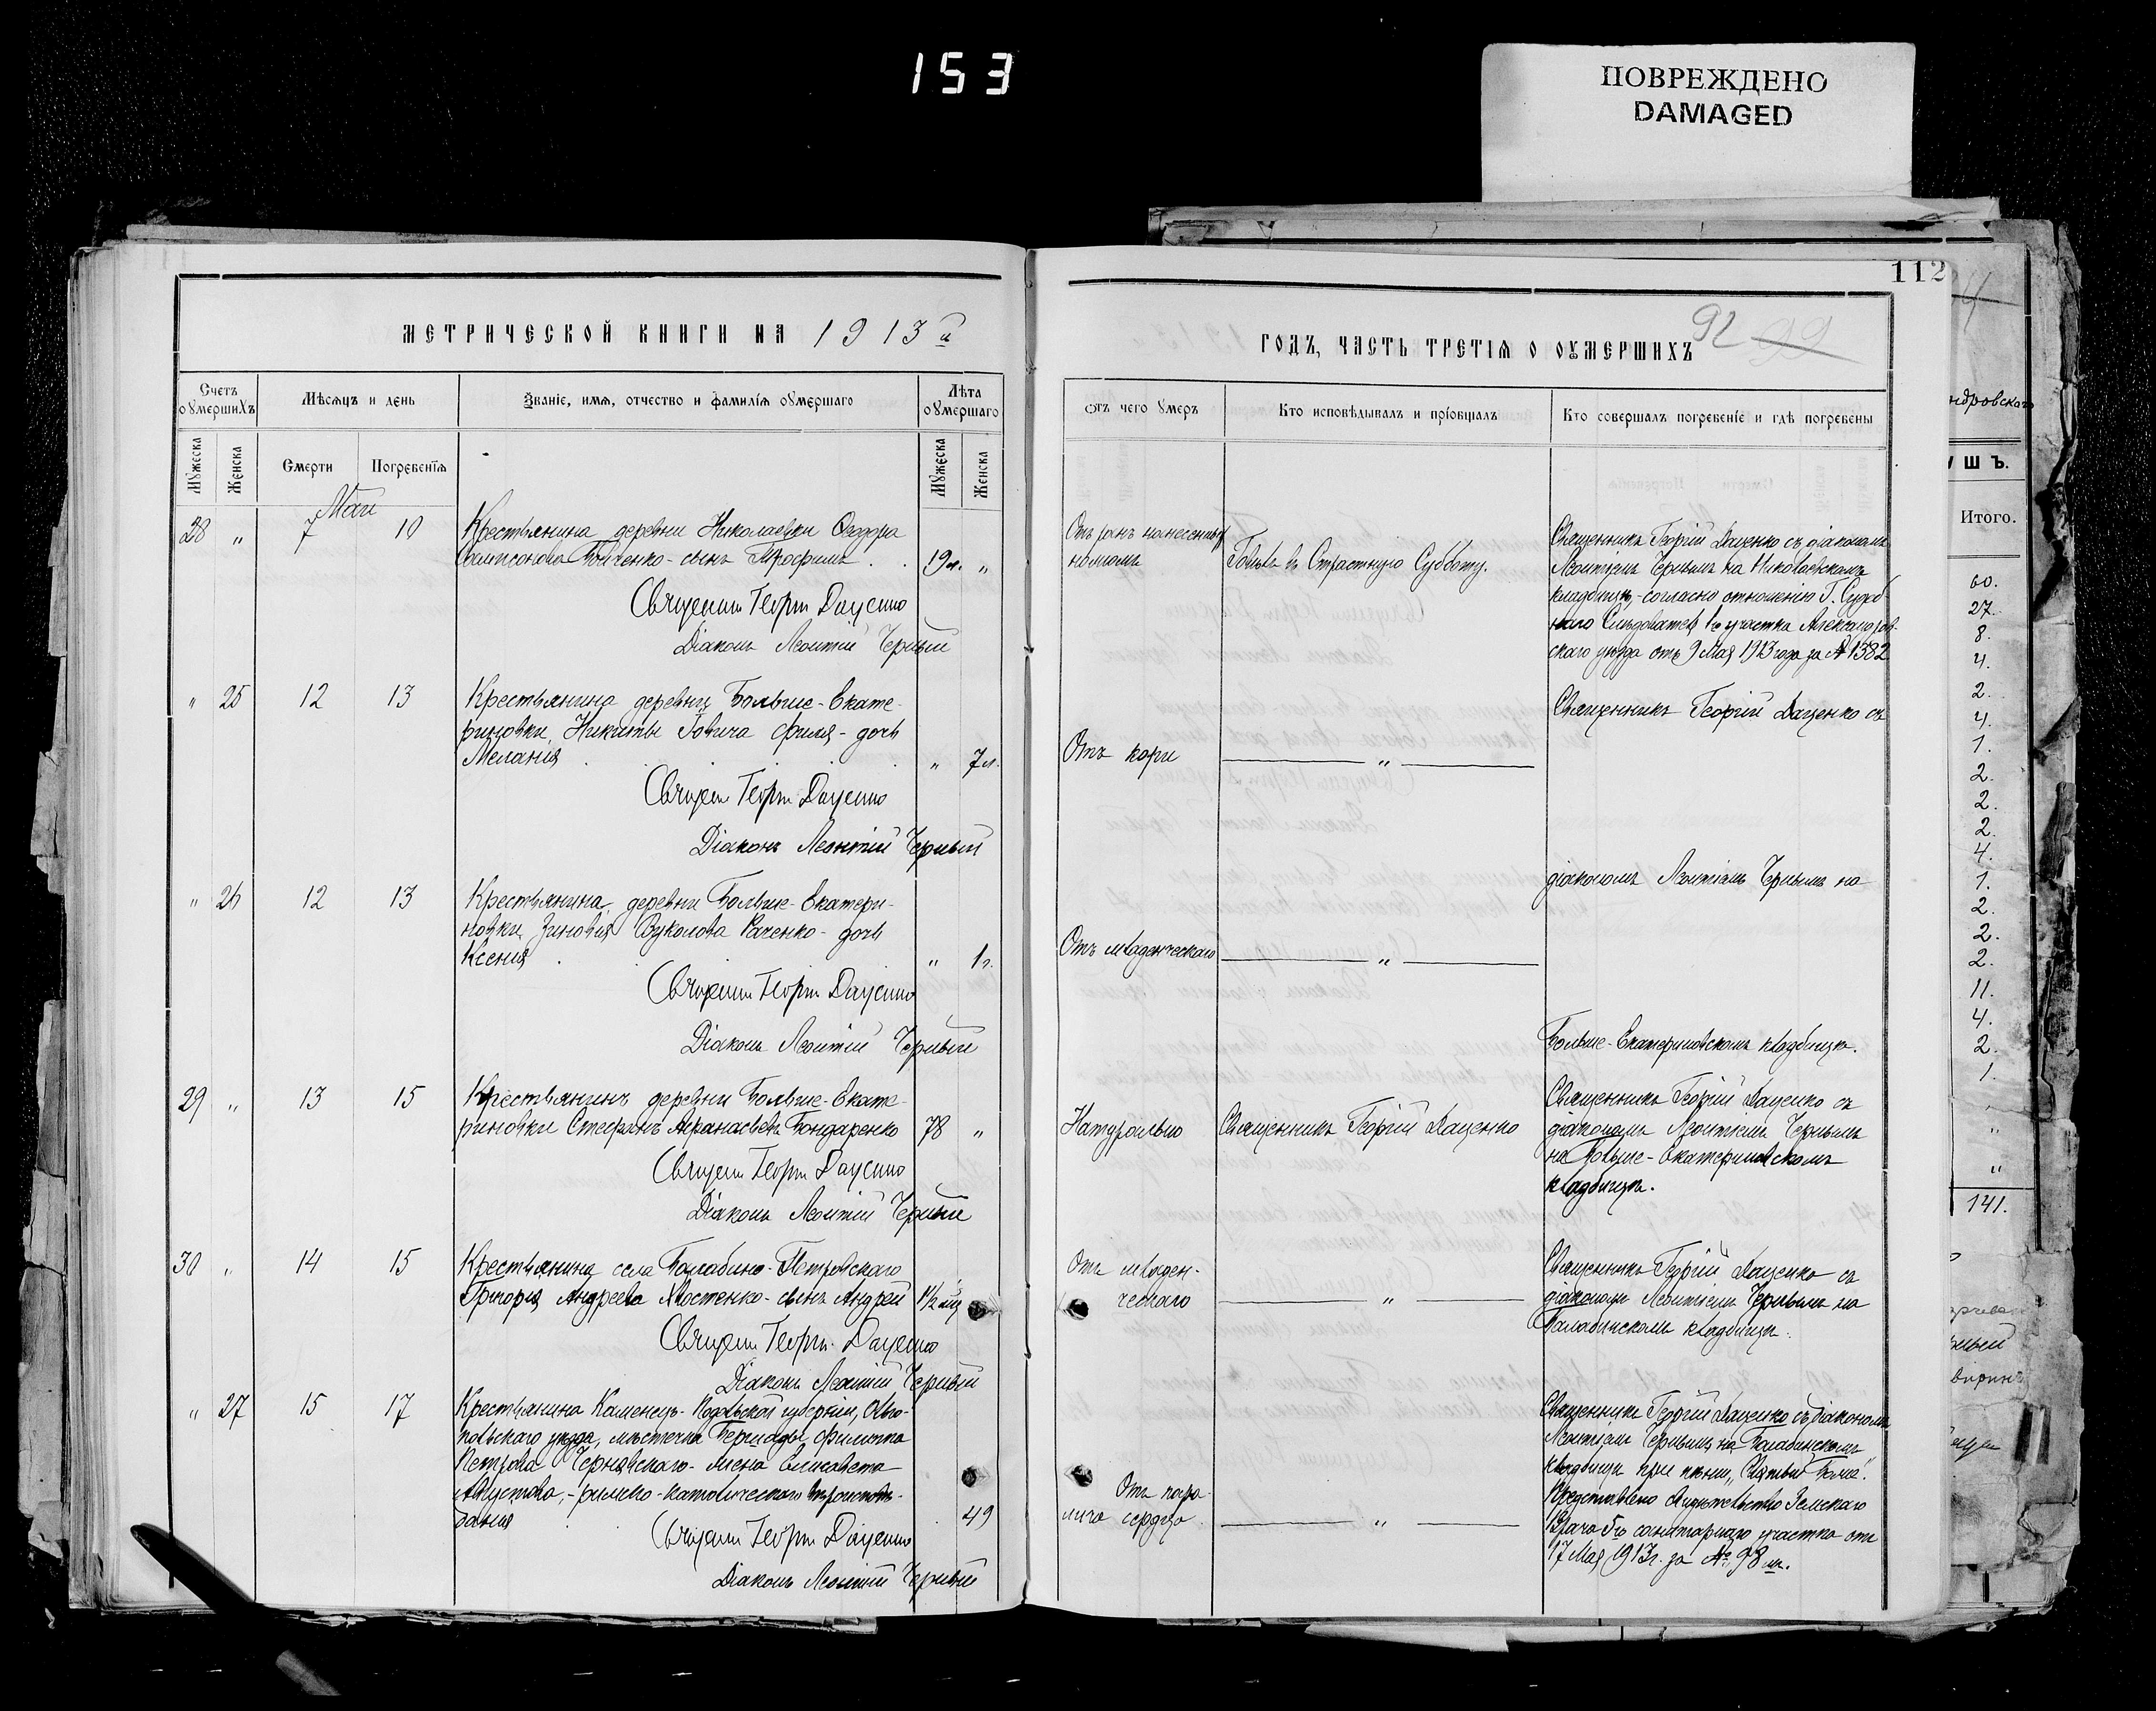 153
ПОВРЕЖДЕНО
DAMAGED
МЕТРИЧЕСКОЙ КНИГИ НА 1913 й
Счетъ оумершихъ
Мѣсяцъ и день
Званіе, имя, отчество и фамилія оумершаго
Лѣта оумершаго
Мужеска
Женска
Смерти
Погребенїя
Мужеска
Женска
Май
28 " 7 10 Крестьянина деревни Николаевки Ѳеодора
Сампсонова Бойченко - сынъ Трофимъ . . 19 л. "
Священникъ Георгій Даценко
Діаконъ Леонтій Черный
" 25 12 13 Крестьянина деревни Больше-Екате-
риновки, Никиты Іовича - дочь
Меланія . . . " 7 л.
Священ Георгій Даценко
Діаконъ Леонтій Черный
" 26 12 13 Крестьянина деревни Больше-Екатери-
новки, Зиновія Вуколова Раченко - дочь
Ксенія . . . " 1 г.
Священникъ Георгій Даценко
Діаконъ Леонтій Черный
29 " 13 15 Крестьянинъ деревни Больше-Екате-
риновки Стефанъ Афанасьевъ Бондаренко 78 "
Священ Георгій Даценко
Діаконъ Леонтій Черный
30 " 14 15 Крестьянина села Балабино-Петровского
Григорія Андреева Хвостенко - сынъ Андрей 1½ мѣс
Священ Георгій Даценко
Діаконъ Леонтій Черный
" 27 15 17 Крестьянина Каменецъ-Подольской губерніи, Ольго-
польскаго уѣзда, мѣстечка Бершады, Филиппа
Петрова Чернявскаго - жена Елисавета
Августова, - римско-католическаго вѣроисповѣ-
данія . . . 49
Священ Георгій Даценко
Діаконъ Леонтій Черный
112
92 99
ГОДЪ, ЧАСТЬ ТРЕТІЯ О ОУМЕРШИХЪ
отъ чего умеръ
Кто исповѣдывалъ и пріобщалъ
Кто совершалъ погребеніе и гдѣ погребены
Отъ ранъ нанесенныхъ
ножомъ
Говѣлъ въ Страстную Субботу.
Священникъ Георгій Даценко съ діакономъ
Леонтіемъ Чернымъ на Николаевскомъ
кладбищѣ, - согласно отношенію Г. Судеб
наго Слѣдователя 1го участка Александров-
скаго уѣзда отъ 9 Мая 1913 года за № 1382
Отъ кори
"
Священникъ Георгій Даценко съ
діакономъ Леонтіемъ Чернымъ на
Отъ младенческаго
"
Больше-Екатериновскомъ кладбищѣ.
Натурально
Священникъ Георгій Даценко
Священникъ Георгій Даценко съ
діакономъ Леонтіемъ Чернымъ
на Больше-Екатериновскомъ
кладбищѣ.
Отъ младен-
ческаго
"
Священникъ Георгій Даценко съ
діакономъ Леонтіемъ Чернымъ на
Балабинскомъ кладбищѣ.
Отъ пара-
лича сердца
"
Священникъ Георгій Даценко съ діакономъ
Леонтіемъ Чернымъ на Балабинскомъ
кладбищѣ при пѣніи „Святый Боже".
Представлено свидѣтельство Земскаго
Врача 5го санитарнаго участка отъ
17 Мая 1913 г. за № 98 мъ.
4
ндровскаго
УШЪ.
Итого.
60.
27.
8.
4.
2.
4.
1.
2.
2.
2.
4.
1.
2.
2.
2.
11.
4.
2.
1.
"
"
141.